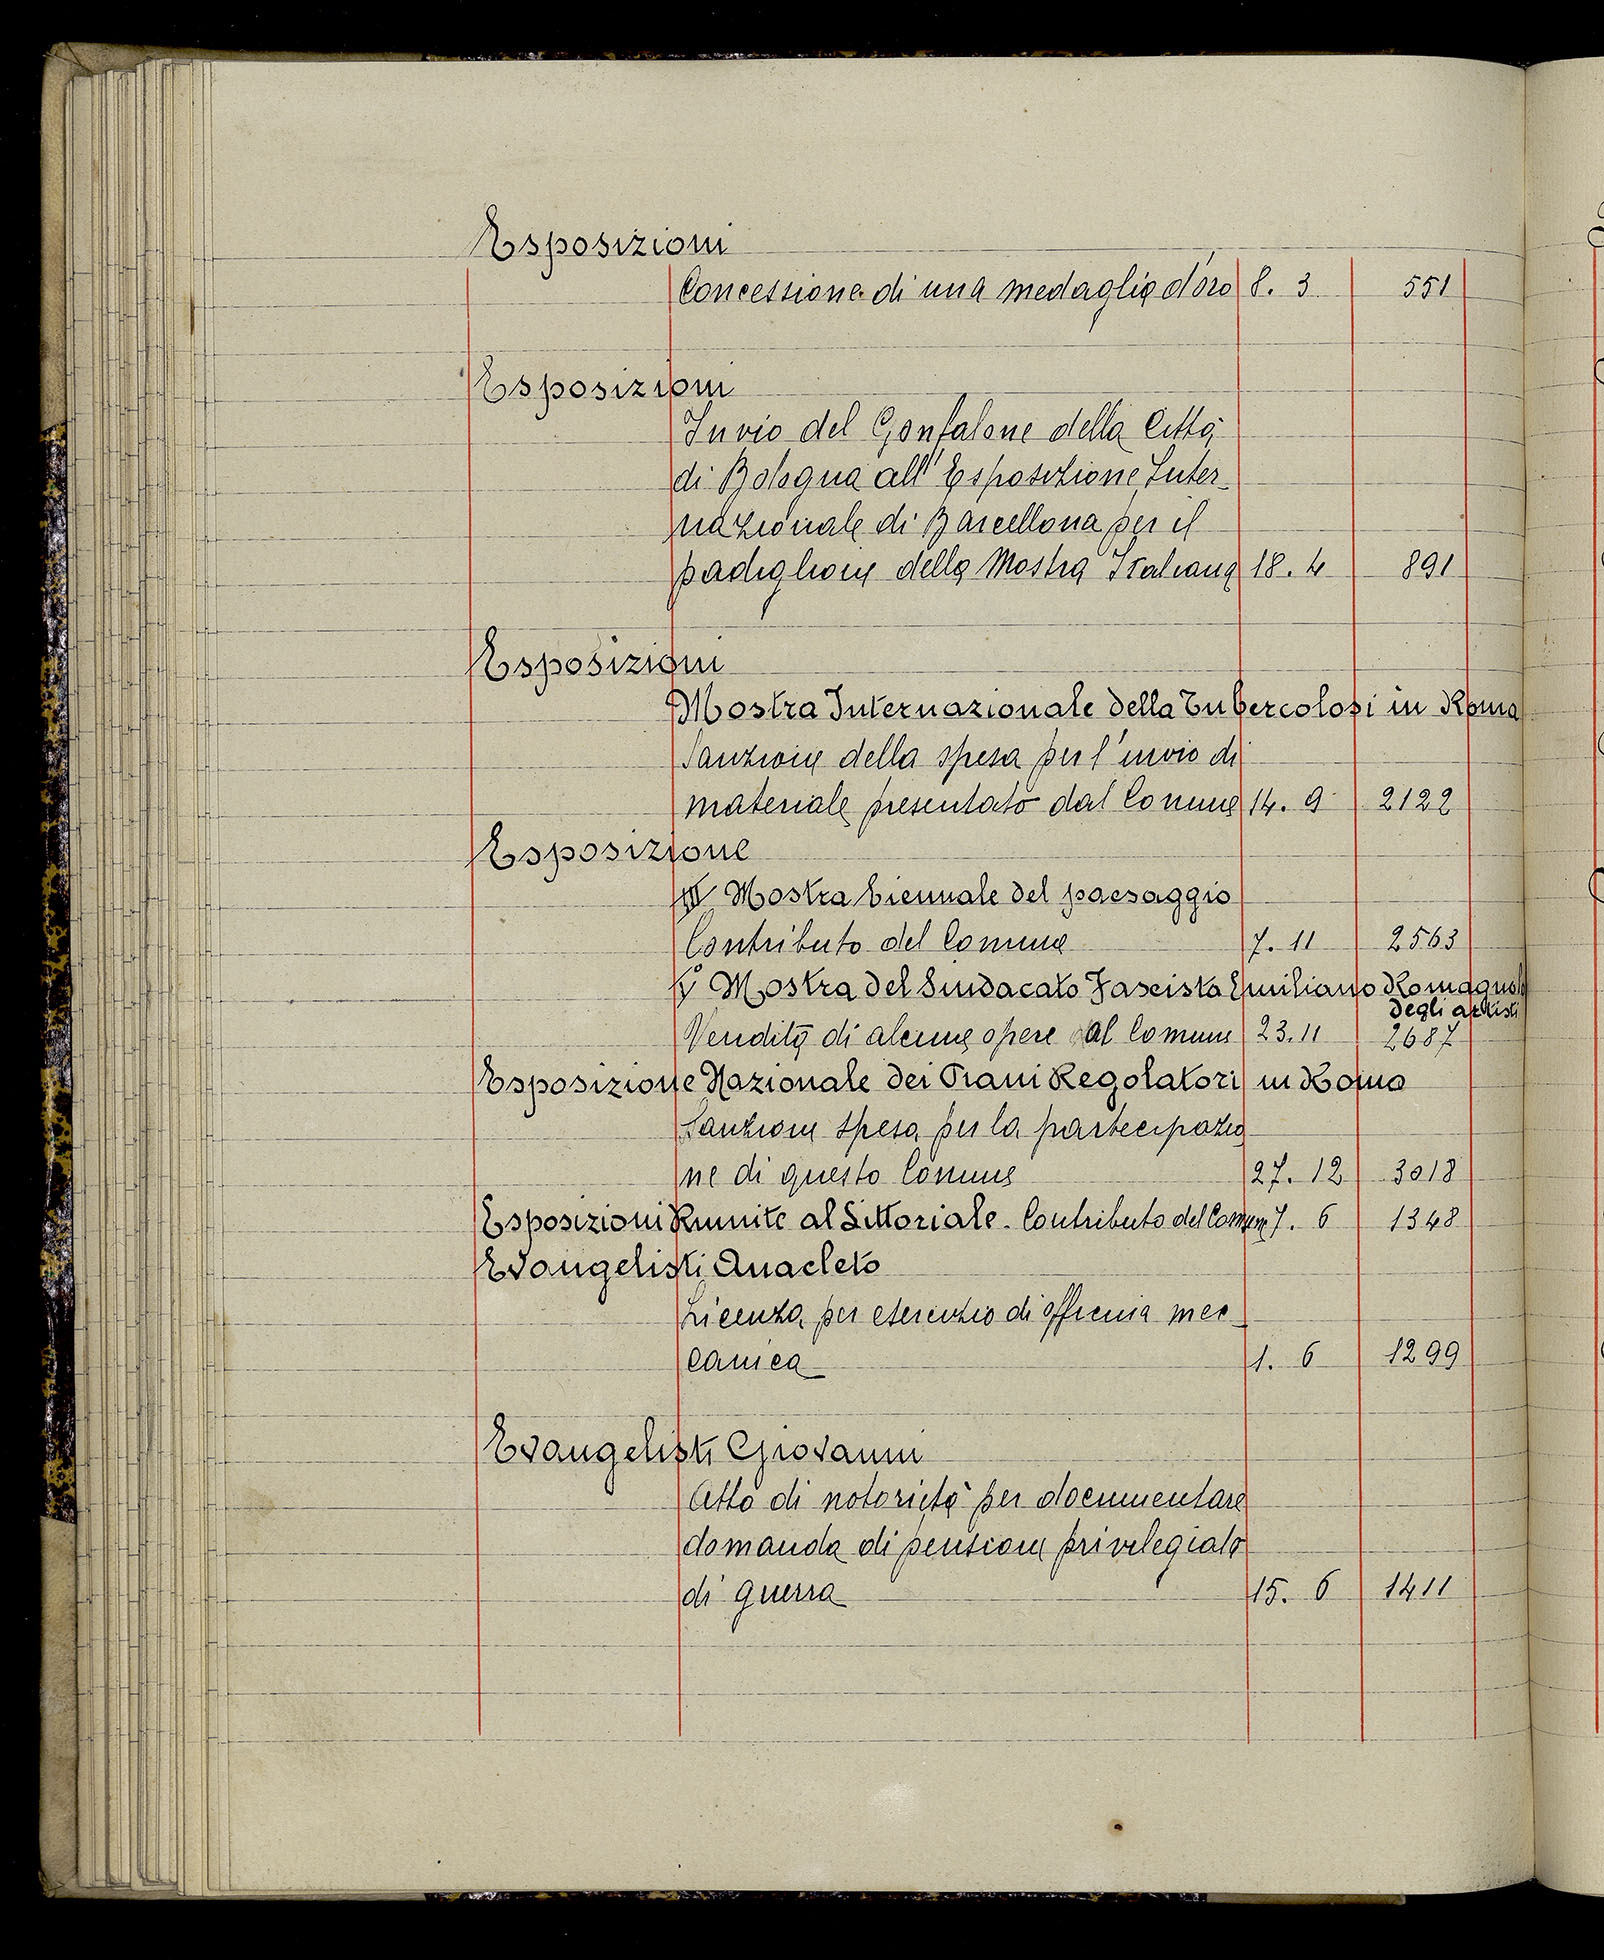 Esposizioni
Concessione di una medaglia d'oro 8. 3 551
Esposizioni
Invio del Gonfalone della Città
di Bologna all'Esposizione Inter-
nazionale di Barcellona per il
padiglione della Mostra Italiana 18. 4 891
Esposizioni
Mostra Internazionale della Tubercolosi in Roma
Sanzione della spesa per l'invio di
materiale presentato dal Comune 14. 9 2122
Esposizione
Mostra biennale del paesaggio
Contributo del Comune 7. 11 2563
Mostra del Sindacato Fascista Emiliano Romagnolo
degli artisti
Vendita di alcune opere al Comune 23. 11 2687
Esposizione Nazionale dei Piani Regolatori in Roma
Sanzione spesa per la partecipazio
ne di questo Comune 27. 12 3018
Esposizioni Riunite al Littoriale - Contributo del Comune 7. 6 1348
Evangelisti Anacleto
Licenza per esercizio di officina mec-
canica 1. 6 1299
Evangelisti Giovanni
Atto di notorietà per documentare
domanda di pensione privilegiata
di guerra 15. 6 1411